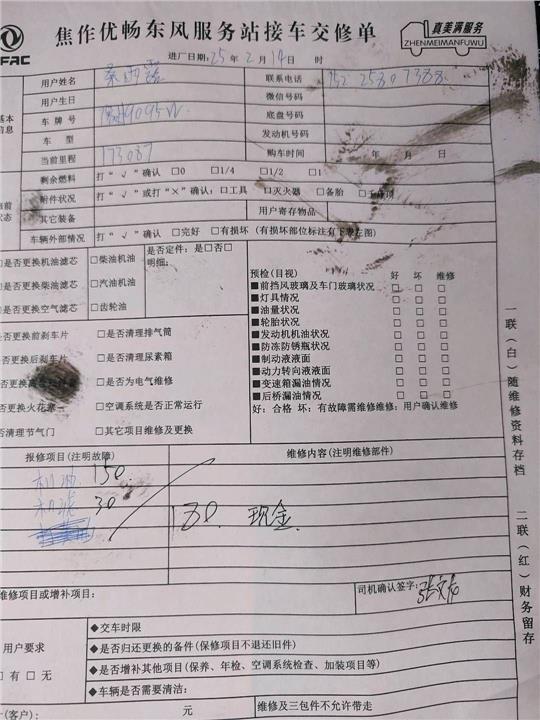 焦作优畅东风服务站接车交修单
真美满服务
ZHENMEIMANFUWU
FAC
进厂日期：25 年 2 月 14 日 时
用户姓名
联系电话 152 2580 7388
用户生日
微信号码
基本
信息
车 牌 号
底盘号码
车 型
发动机号码
当前里程 173087
购车时间 年 月 日
剩余燃料 打“√”确认 □0 □1/4 □1/2 □1
附件状况 打“√”或打“×”确认：□工具 □灭火器 □备胎
状态
其它装备
用户寄存物品
车辆外部情况 打“√”确认 □完好 □有损坏（有损坏部位标注有下表左图）
是否更换机油滤芯 □柴油机油
是否定件：是□否□
明细：
是否更换柴油滤芯 □汽油机油
是否更换空气滤芯 □齿轮油
预检（目视） 好 坏 维修
■前挡风玻璃及车门玻璃状况 □ □ □
■灯具情况 □ □ □
■油量状况 □ □ □
■轮胎状况 □ □ □
■发动机机油状况 □ □ □
■防冻防锈瓶状况 □ □ □
■制动液液面 □ □ □
■动力转向液液面 □ □ □
■变速箱漏油情况 □ □ □
■后桥漏油情况 □ □ □
好：合格 坏：有故障需维修维修：用户确认维修
是否更换前刹车片 □是否清理排气筒
是否更换后刹车片 □是否清理尿素箱
是否更换 □是否为电气维修
是否更换火花塞 □空调系统是否正常运行
是否清理节气门 □其它项目维修及更换
报修项目（注明故障）
维修内容（注明维修部件）
机油 150
机滤 30
180. 现金.
维修项目或增补项目：
司机确认签字：
用户要求
□有 □无
◆交车时限
◆是否归还更换的备件（保修项目不退还旧件）
◆是否增补其他项目（保养、年检、空调系统检查、加装项目等）
◆车辆是否需要清洁：
计（客户）： 元
维修及三包件不允许带走
一联（白）随维修资料存档
二联（红）财务留存